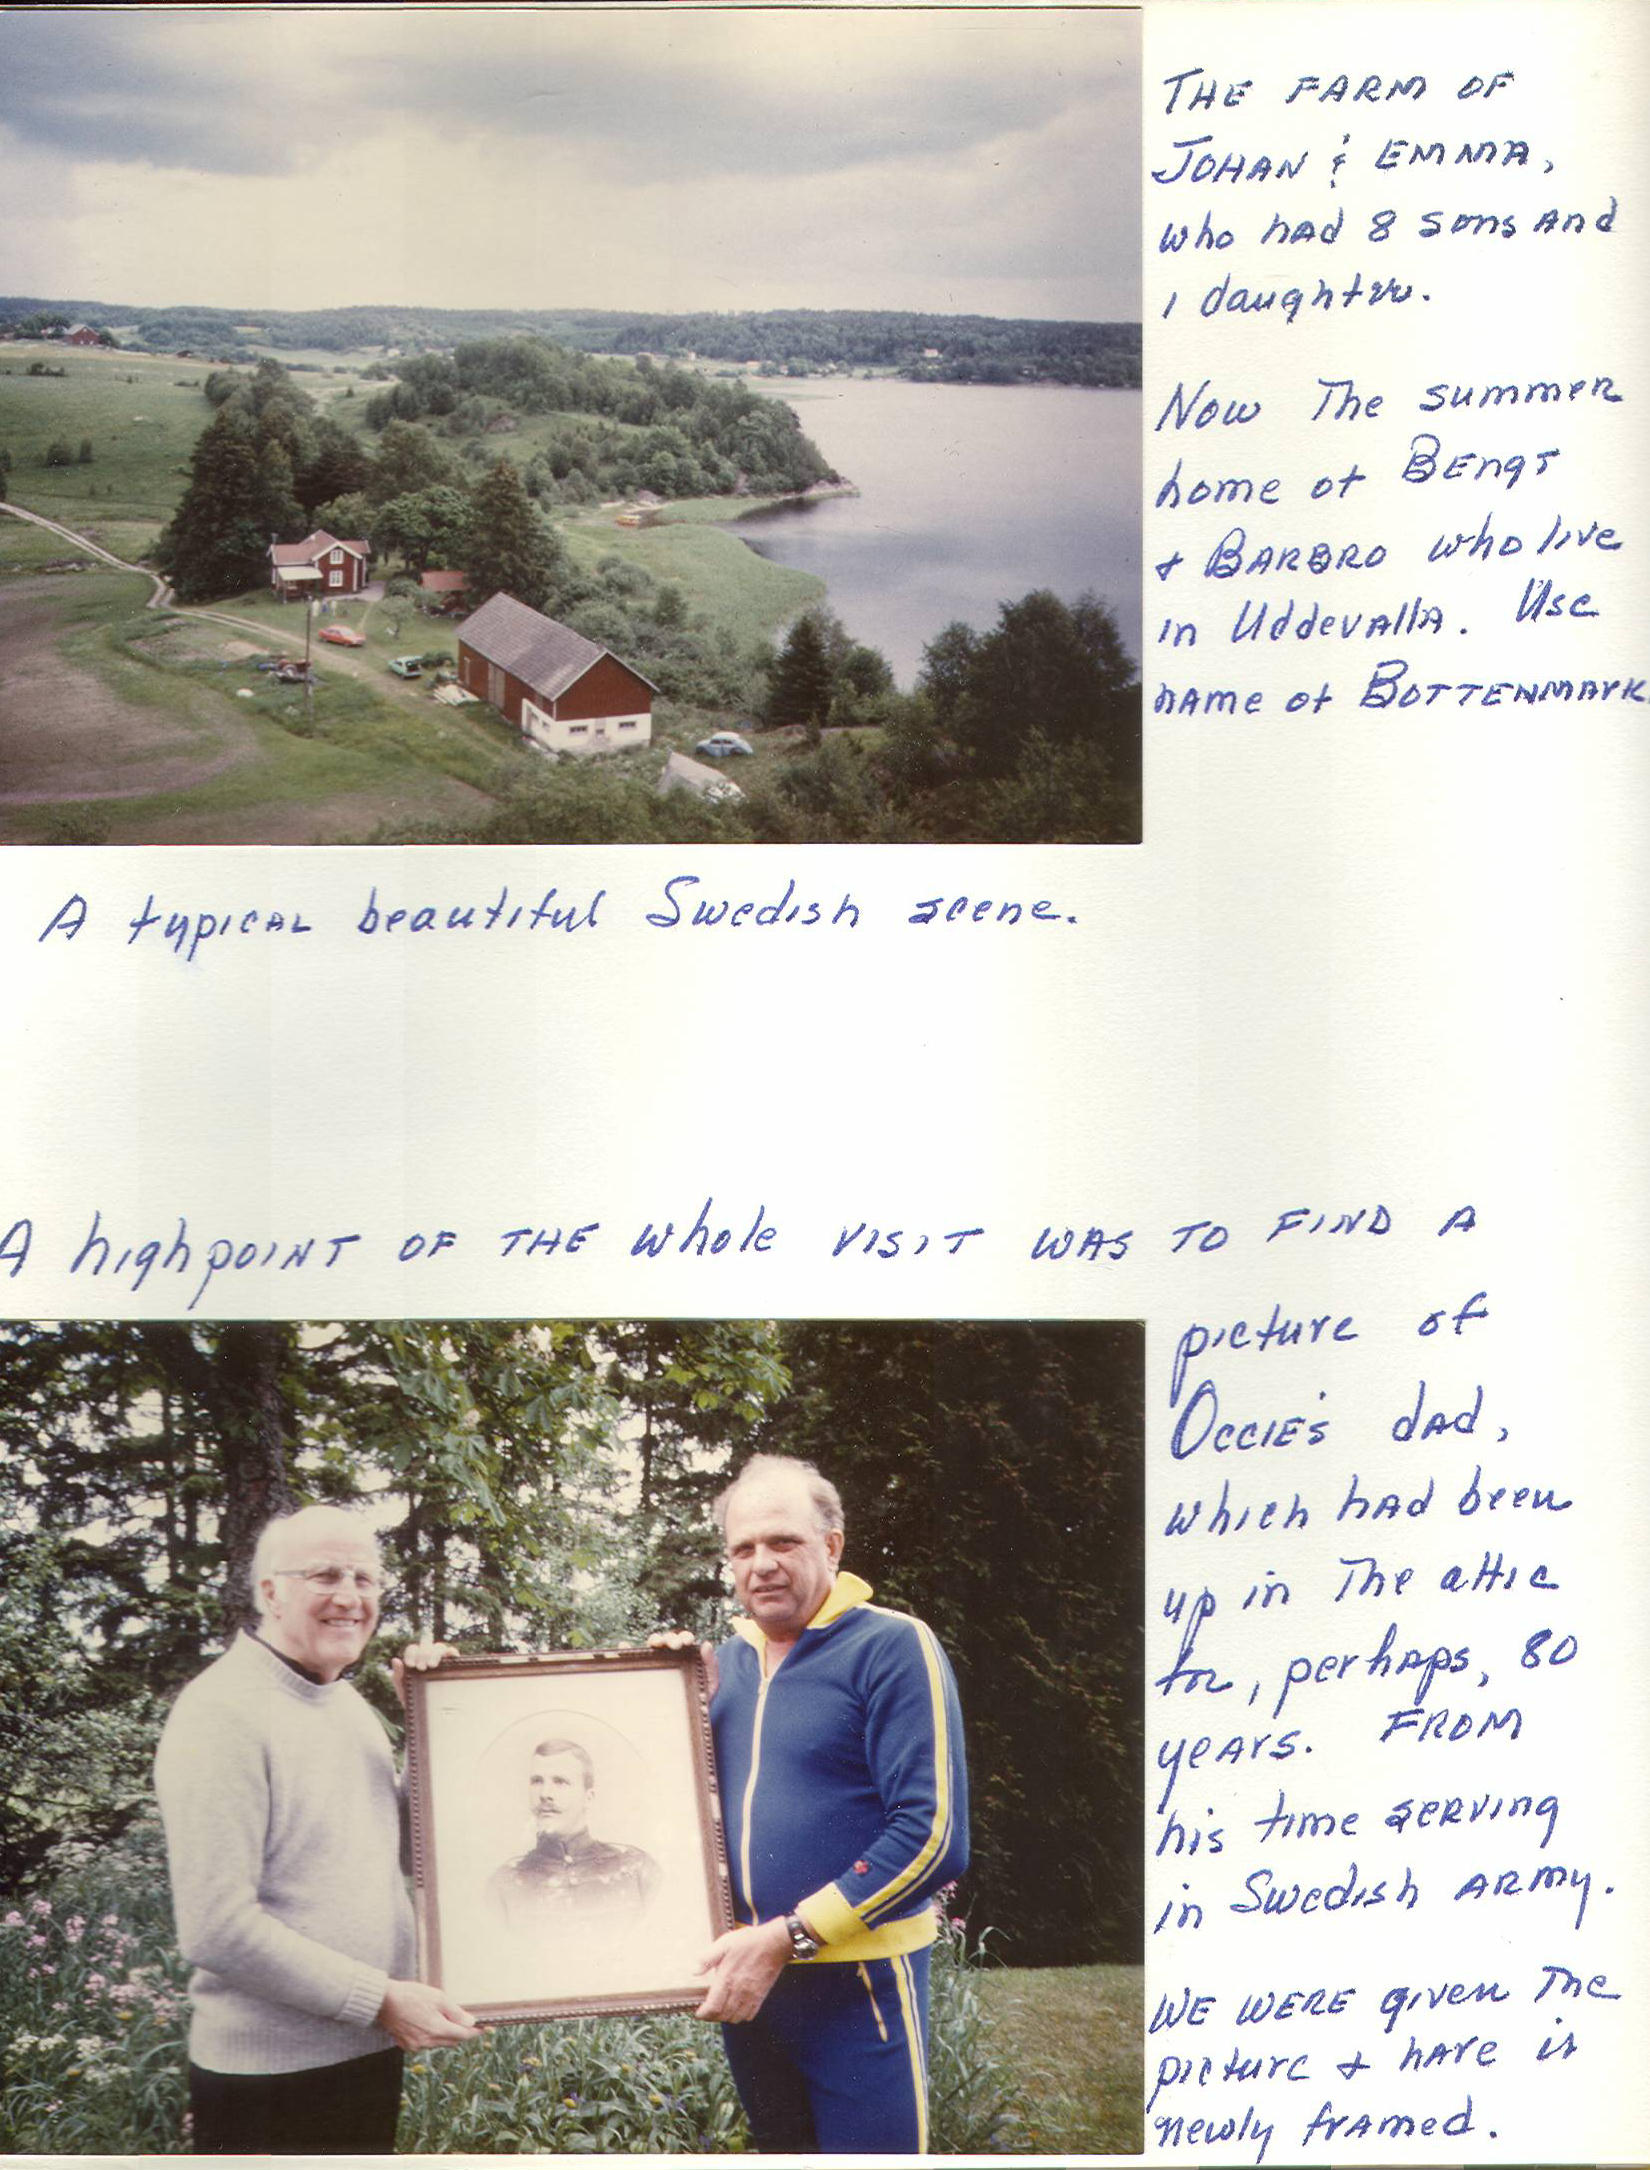 THE FARM OF
JOHAN & EMMA,
who had 8 sons and
1 daughter.
Now The summer
home of Bengt
& Barbro who live
in Uddevalla. Use
name of Bottenmark
A typical beautiful Swedish scene.
A highpoint of the whole visit was to find a
picture of
Occie's dad,
which had been
up in The attic
for, perhaps, 80
years. From
his time serving
in Swedish Army.
We were given The
picture & have it
newly framed.